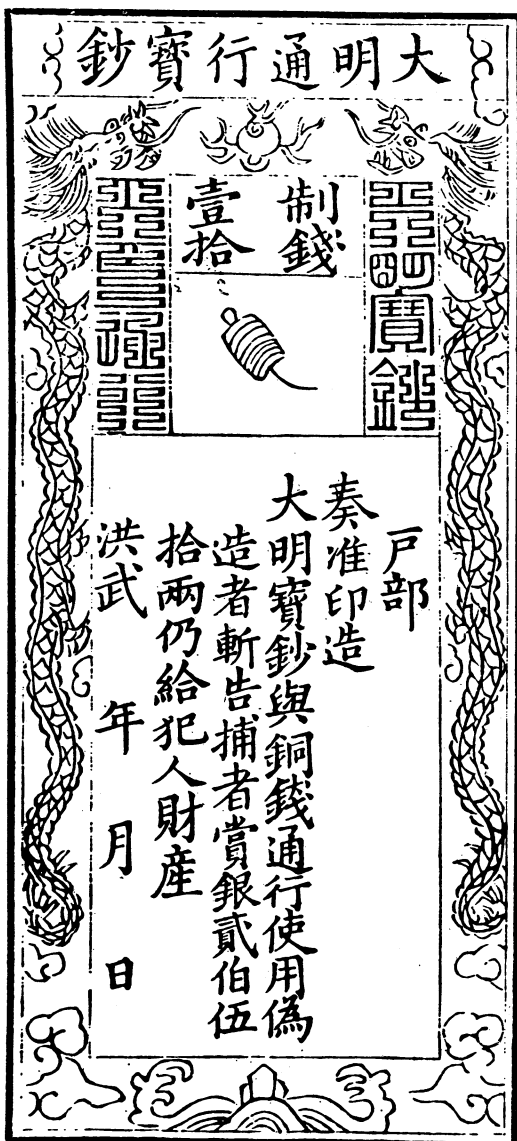 大明通行寶鈔
大明寶鈔
制錢
壹拾
天下通行
戶部
奏准印造
大明寶鈔與銅錢通行使用偽
造者斬告捕者賞銀貳伯伍
拾兩仍給犯人財産
洪武 年 月 日